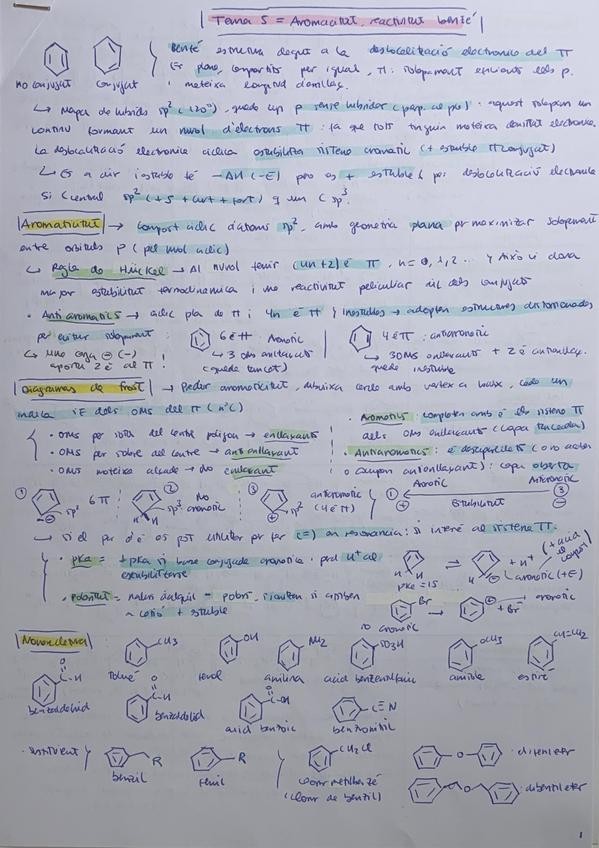 Tema 5 = Aromaticitat, reactivitat benzé
Benzé estructura degut a la deslocalització electronica del π
Es plana, compartits per igual, π: solapament eficient dels p.
no conjugat conjugat i mateixa longitud d'enllaç.
↳ Mapa de hibrids sp² (120°), queda un p sense hibridar (perp. al pla). aquest solapen un
continu formant un nuvol d'electrons π : fa que tots tinguin mateixa densitat electronica.
La deslocalització electronica ciclica estabilitza sistema aromatic (+ estable π conjugat)
↳ Es a dir inestable té -ΔH (-E) però es + estable per deslocalització electronica
Si C central sp² (+ s + curt + fort) q un C sp³
Aromaticitat → compost ciclic d'atoms sp², amb geometria plana per maximizar solapament
entre orbitals p (pel nuvol ciclic)
↳ Regla de Hückel → Al nuvol tenir (4n+2) e⁻ π, n = 0, 1, 2... y això li dona
major estabilitat termodinamica i una reactivitat peliculiar dels conjugats
• Antiaromatics → ciclic pla de π i 4n e⁻ π } Inestables → adopten estructures distorsionades
per evitar solapament : 6 e⁻ π Aromatic 4 e⁻ π : antiaromatic
↳ una carga ⊖ (-) aporta 2 e⁻ al π!
↳ 3 OMs enllaçants (queda tancat)
↳ 3 OMs enllaçants + 2 e⁻ antienllaç. queda inestable
Diagrames de frost → Poder aromaticitat, dibuixa cercle amb vertex a baix, cada un
indica 1 E dels OMs del π (nºC)
• OMs per sota del centre poligon → enllaçants
• OMs per sobre del centre → antienllaçant
• OMs mateixa alçada → No enllaçant
• Aromatics: completen amb e⁻ els sistema π
dels OMs enllaçants (capa tancada)
• Antiaromatics: e⁻ desaparellats (o no
o ocupen antienllaçant): capa oberta
① sp² 6π ② sp³ No aromatic ③ sp² antiaromatic (4 e⁻ π)
① Aromatic Antiaromatic ③
⊕ Estabilitat ⊖
↳ si el par d'e⁻ es pot utilitzar per fer (=) en resonancia: si interé al sistema π.
• pKa = ↓ pKa si base conjugada aromatica: perd H⁺ al
estabilitzarse
pKa = 15
⇌ + H⁺ (+ acid conjugat)
↳ aromatic (+E)
• Polaritat = halur d'alquil = polars, si aromatic
~ catió + estable
Br → ⊕ + Br⁻
no aromatic
aromatic
Nomenclatura
CH₃ OH NH₂ SO₃H OCH₃ CH=CH₂
Tolué fenol anilina acid benzensulfonic anisole estiré
O C-H O C-H O C-OH C≡N
benzaldehid benzaldehid acid benzoic benzonitril
• Substituent R R CH₂Cl O : difenileter
benzil fenil clorur metilbenzé
(clorur de benzil) O : dibenzileter
1